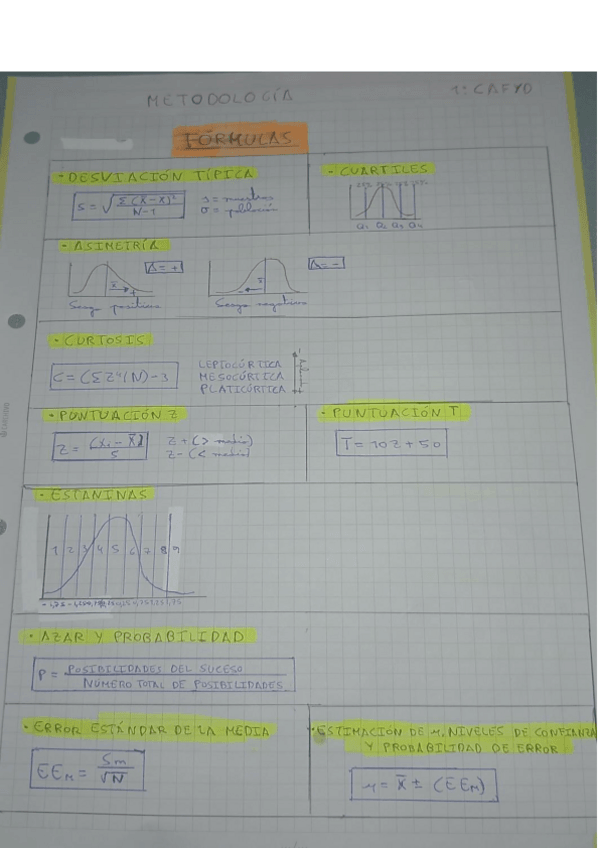 METODOLOGÍA
1º CAFYD
FÓRMULAS
· DESVIACIÓN TÍPICA
S = √ Σ (X - X̄)² / N-1
s = muestra
σ = población
· CUARTILES
Q₁ Q₂ Q₃ Q₄
· ASIMETRÍA
A = +
x̄
Sesgo positivo
A = -
x̄
Sesgo negativo
· CURTOSIS
C = (Σ Z⁴/N) - 3
LEPTOCÚRTICA
MESOCÚRTICA
PLATICÚRTICA
· PUNTUACIÓN Z
Z = (Xi - X̄) / S
Z + (> media)
Z - (< media)
· PUNTUACIÓN T
T = 10 Z + 50
· ESTANINAS
1 2 3 4 5 6 7 8 9
· AZAR Y PROBABILIDAD
P = POSIBILIDADES DEL SUCESO
NÚMERO TOTAL DE POSIBILIDADES
· ERROR ESTÁNDAR DE LA MEDIA
EEM = Sm / √N
· ESTIMACIÓN DE μ, NIVELES DE CONFIANZA
Y PROBABILIDAD DE ERROR
μ = X̄ ± (EEM)